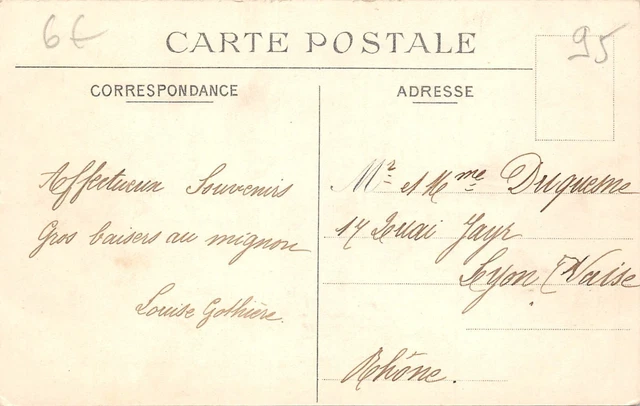 6€
95
CARTE POSTALE
CORRESPONDANCE
Affectueux Souvenirs
Gros baisers au mignon
Louise Gothière.
ADRESSE
Mr et Mme Duquesne
17 Quai Jayr
Lyon (Vaise
Rhône.